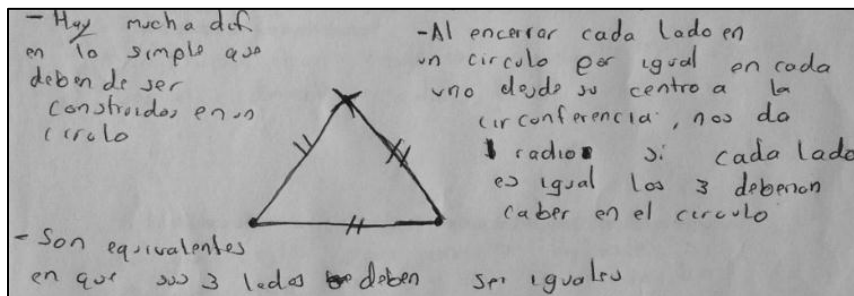 - Hay mucha dif
en lo simple que
deben de ser
construidos en un
circulo
-Al encerrar cada lado en
un circulo por igual en cada
uno desde su centro a la
circonferencia, nos da
1 radio si cada lado
es igual los 3 deberian
caber en el circulo
- Son equivalentes
en que sus 3 lados deben ser iguales